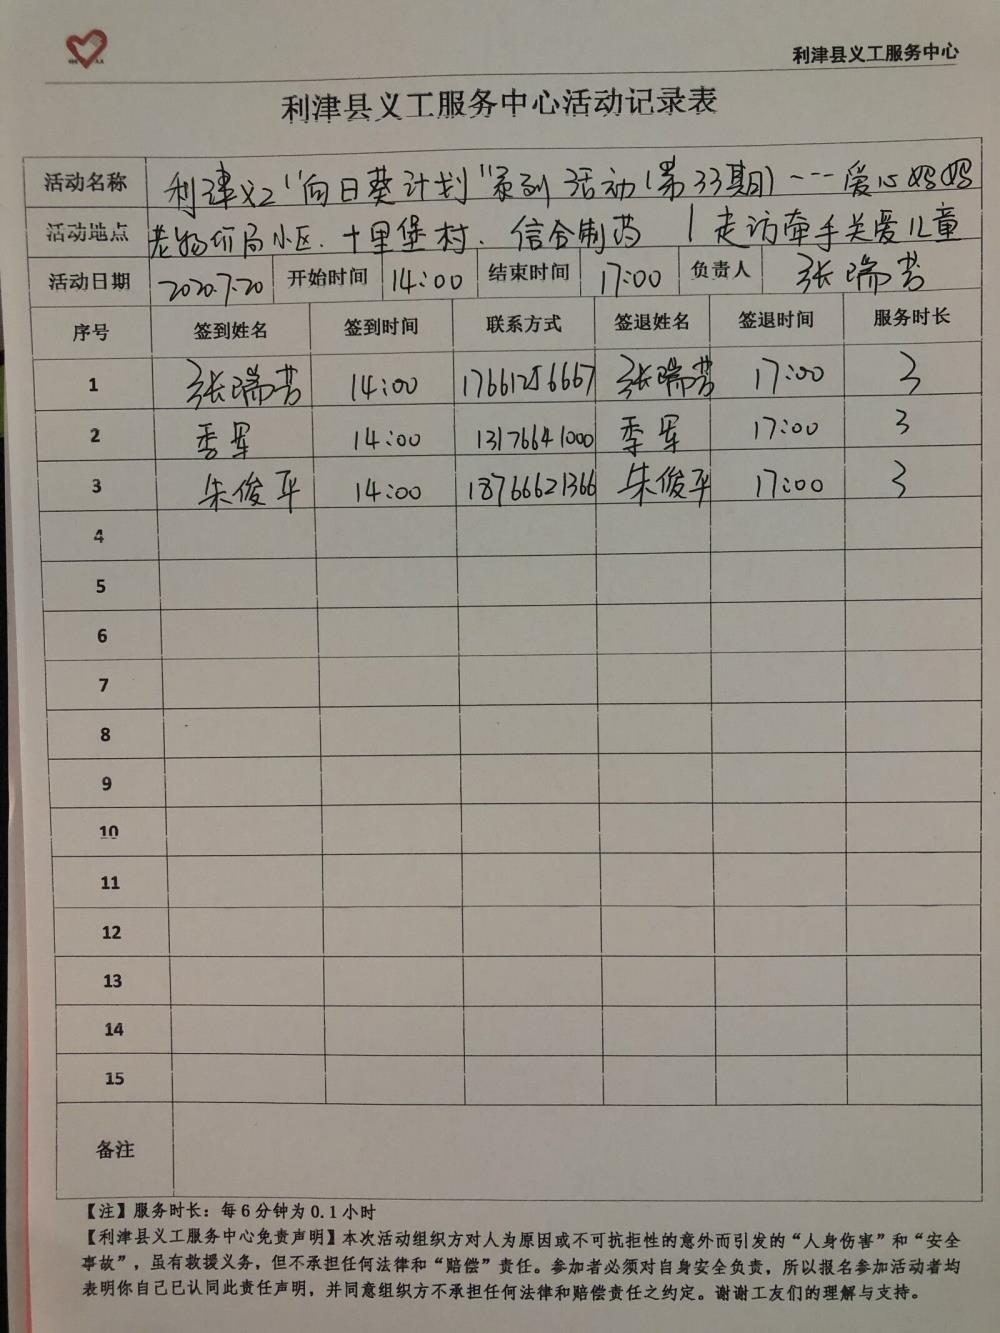 利津县义工服务中心
利津县义工服务中心活动记录表
活动名称 利津义工“向日葵计划”系列活动(第33期)---爱心妈妈
活动地点 老物价局小区、十里堡村、信合制药 走访牵手关爱儿童
活动日期 2020.7.20 开始时间 14:00 结束时间 17:00 负责人 张瑞芸
序号 签到姓名 签到时间 联系方式 签退姓名 签退时间 服务时长
1 张瑞芸 14:00 17661256667 张瑞芸 17:00 3
2 季军 14:00 13176641000 季军 17:00 3
3 朱俊平 14:00 18766621366 朱俊平 17:00 3
4
5
6
7
8
9
10
11
12
13
14
15
备注
【注】服务时长：每6分钟为0.1小时
【利津县义工服务中心免责声明】本次活动组织方对人为原因或不可抗拒性的意外而引发的“人身伤害”和“安全
事故”，虽有救援义务，但不承担任何法律和“赔偿”责任。参加者必须对自身安全负责，所以报名参加活动者均
表明你自己已认同此责任声明，并同意组织方不承担任何法律和赔偿责任之约定。谢谢工友们的理解与支持。